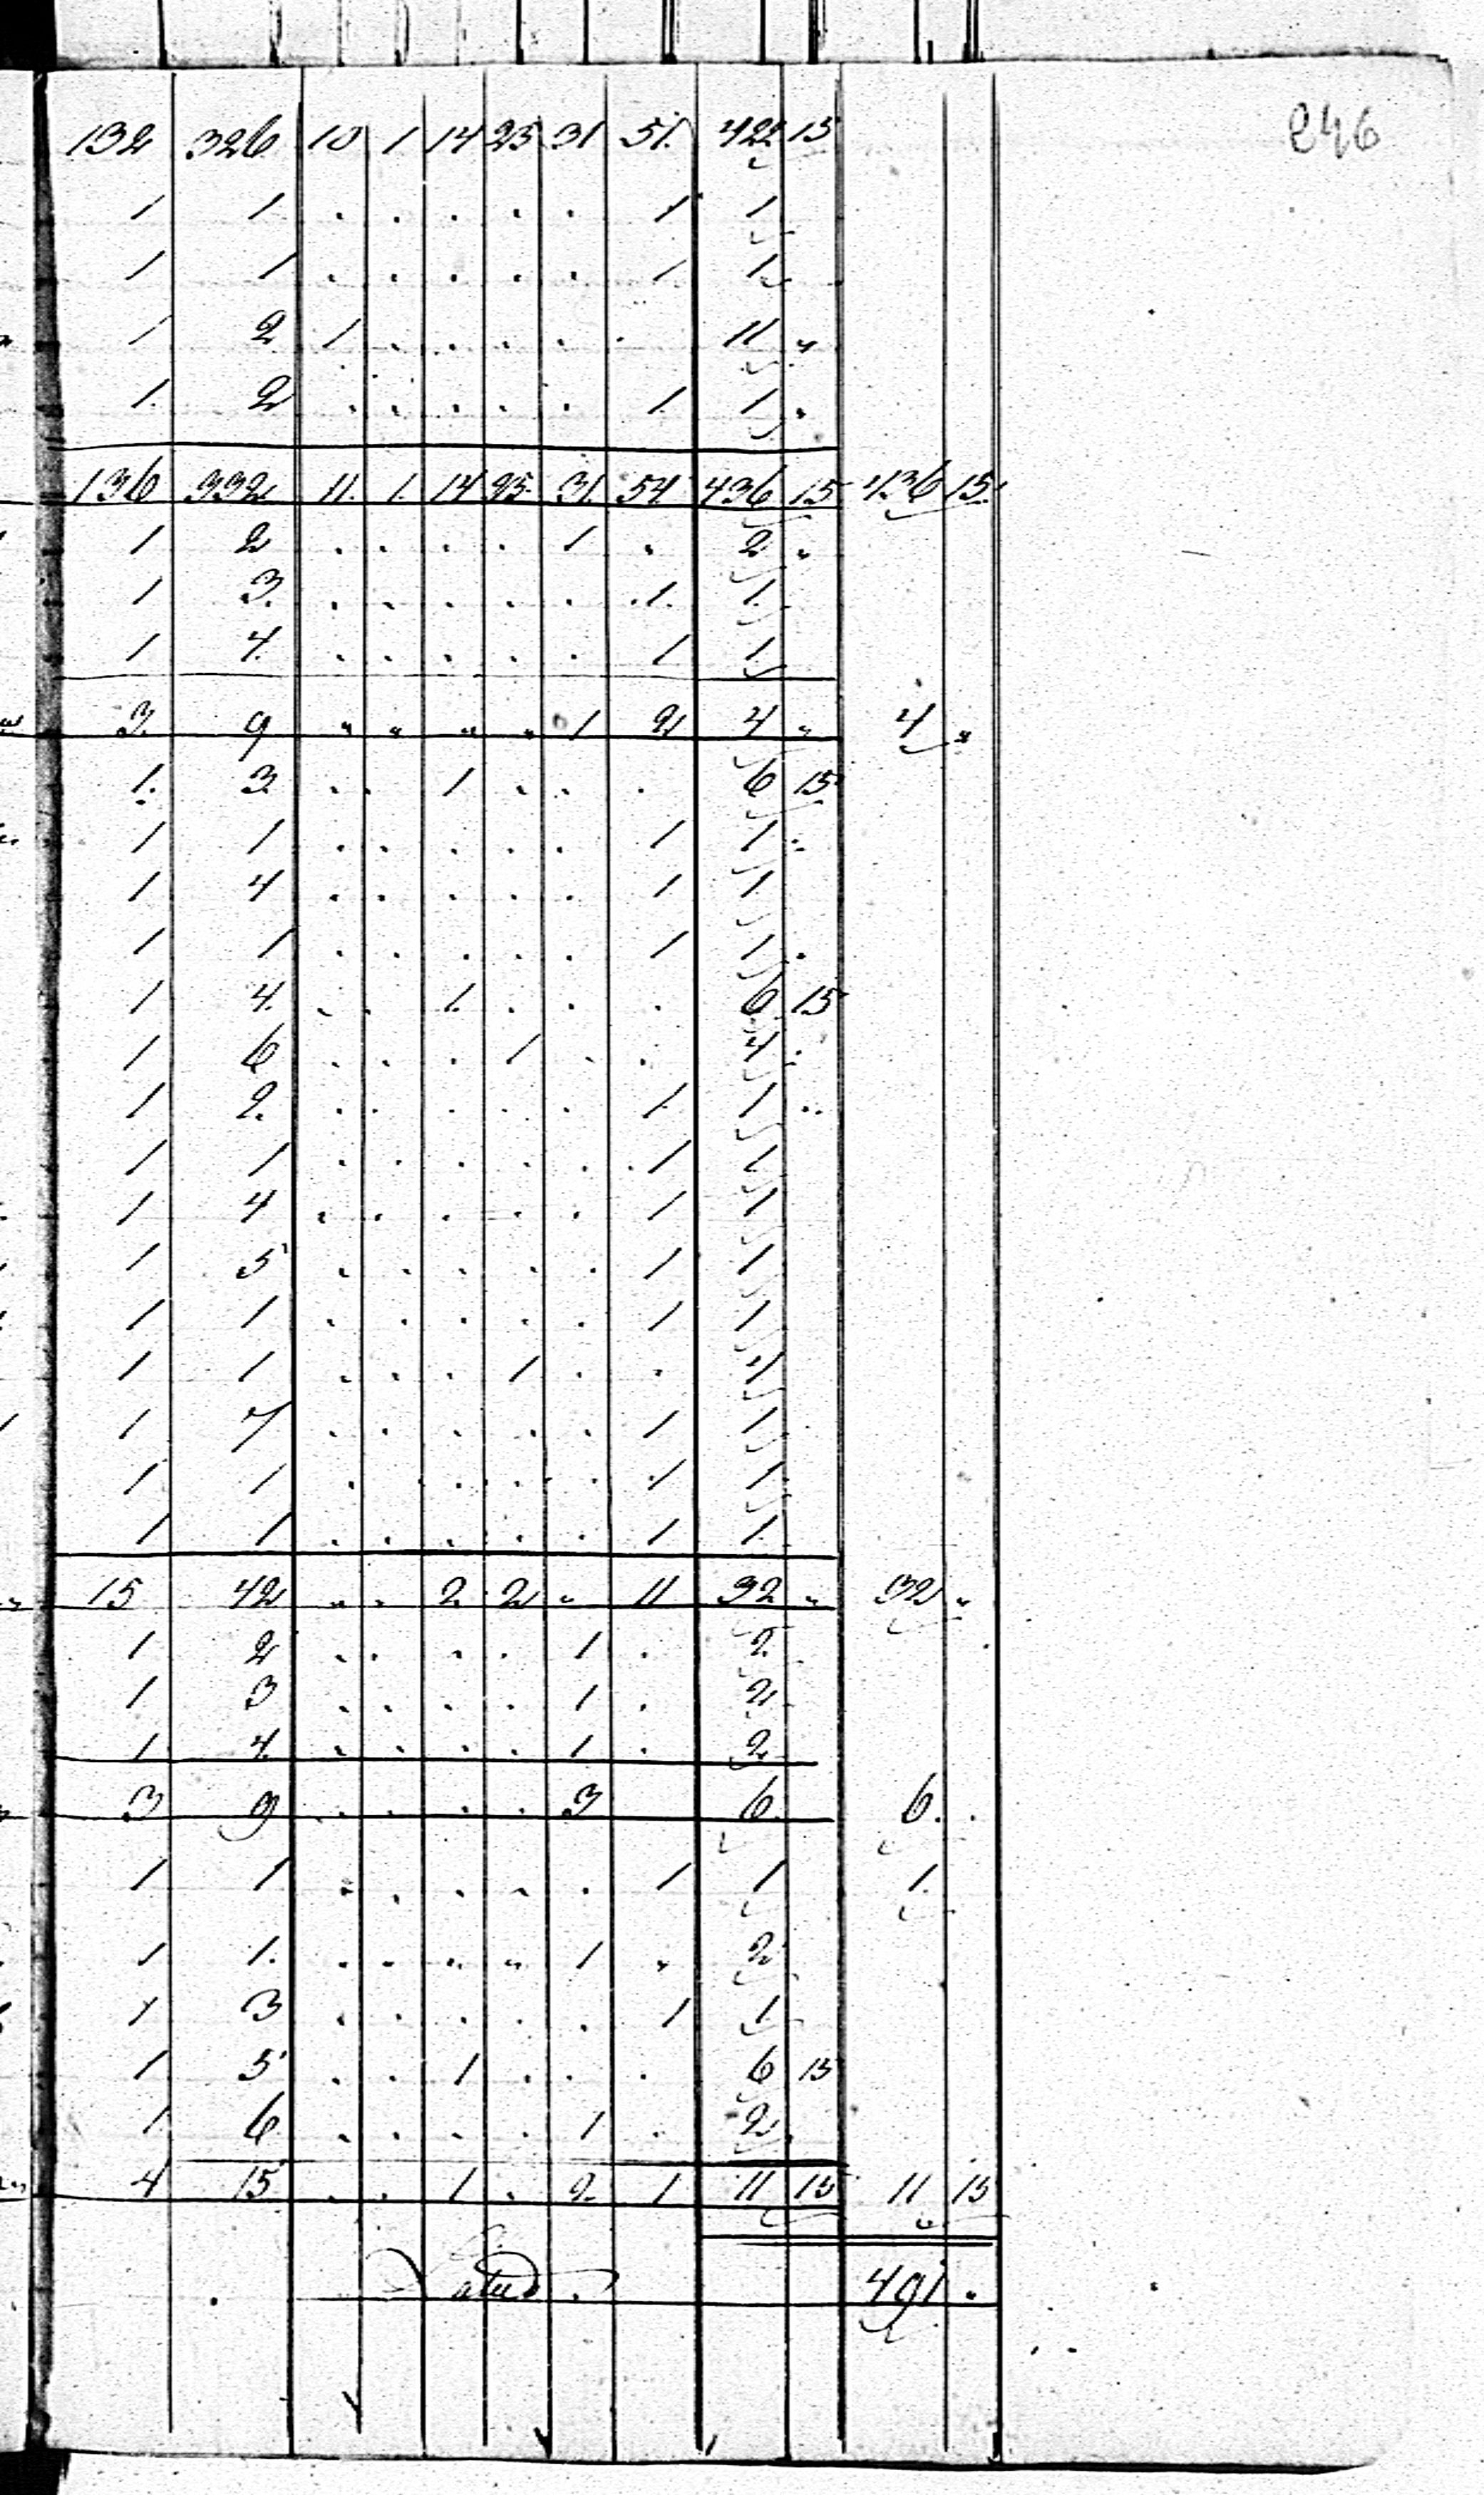 246
132 326 10 1 14 25 31 51. 422 15
1 1 . . . . . 1 1
1 1 . . . . . 1 1
1 2 1 . . . . . 11 "
1. 2 . . . . . 1. 1 .
136 332 11. 1. 14 25. 31. 54 436 15 436 15.
1 2 . . . . 1 . 2 "
1 3. . . . . . .1. 1.
1 4. . . . . . 1 1
3. 9 " " " " 1 2 4 " 4 "
1. 3 . . 1 . . . 6 15
1 1 . . . . . 1 1 .
1 4 . . . . . 1. 1
1 1 . . . . . 1 1 .
1 4. . . 1. . . . 6 15
1 6 . . . 1 . . 4 .
1 2. . . . . . 1. 1 ..
1 1 . . . . . .1 1
1 4 . . . . . 1 1
1 5 . . . . . 1 1
1 1 . . . . . 1 1
1 1 . . . 1 . . 4
1 7 . . . . . 1 1
1 1 . . . . . 1 1
1 1 . . . . . 1 1.
15 42 " . 2. 2 " 11 32 " 32 "
1 2 . . . . 1 . 2
1 3 . . . . 1 . 2
1 4. . . . . 1 . 2
3 9 . . . . 3 6. 6. .
1 1 . . . . . 1 1 1.
1 1. . . " " 1 " 2
1 3 . . . . . 1 1
1 5 . . 1 . . . 6 15
1 6 . . . . 1 . 2
4 15 . . 1 . 2 1 11 15 11 15
Latus . 491 .